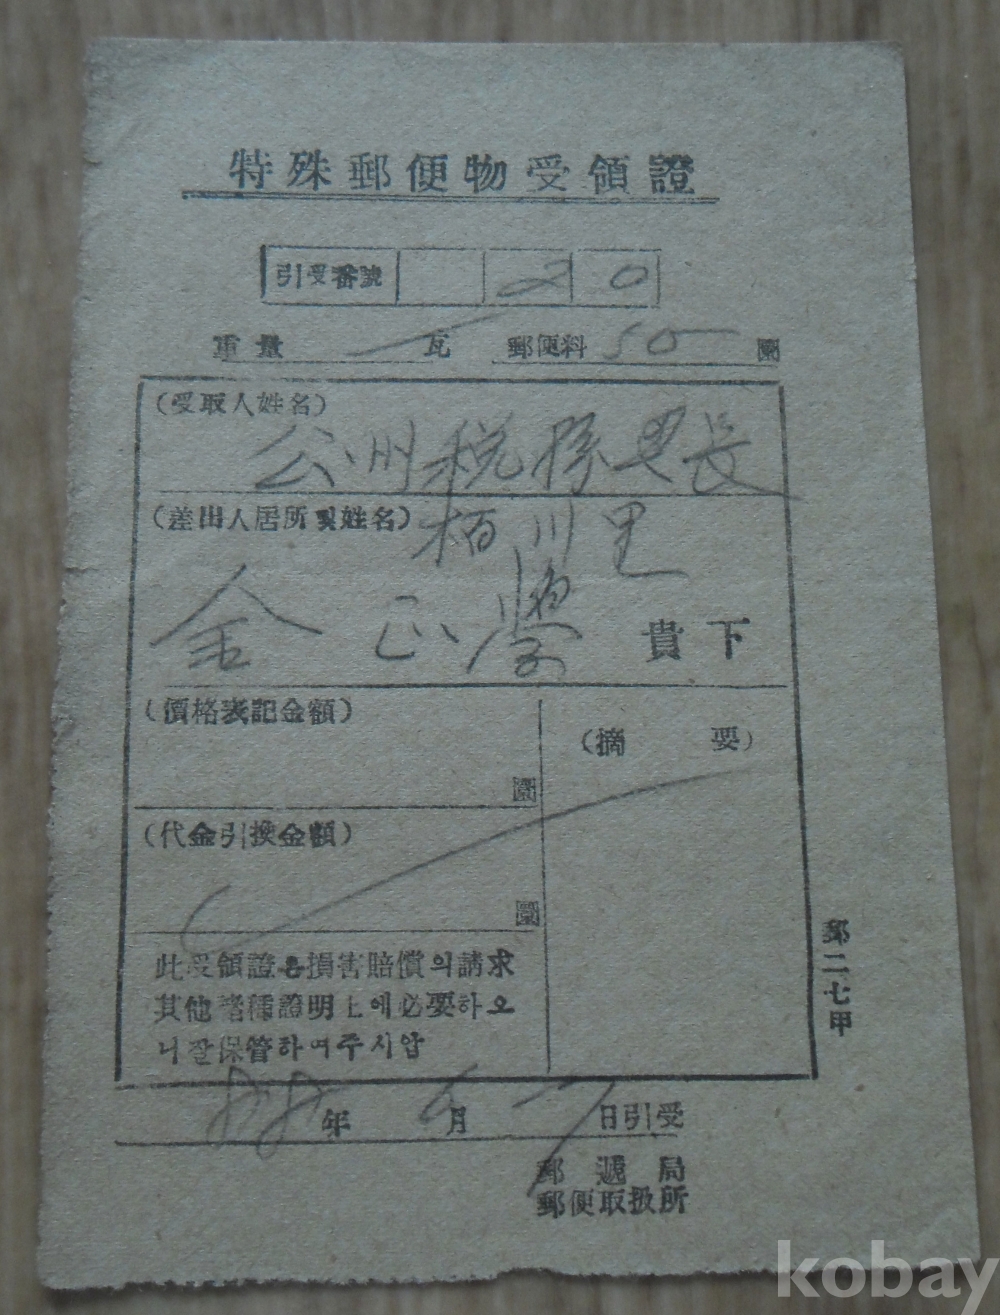 特殊郵便物受領證
引受番號 20
重量 瓦 郵便料 50 圜
(受取人姓名)
公州稅務署長
(差出人居所및姓名) 栢川里
金 正 學 貴下
(價格表記金額)
圜
(摘 要)
(代金引換金額)
圜
此受領證은損害賠償의請求
其他諸種證明上에必要하오
니잘保管하여주시압
郵二七甲
年 月 日引受
郵遞局
郵便取扱所
kobay